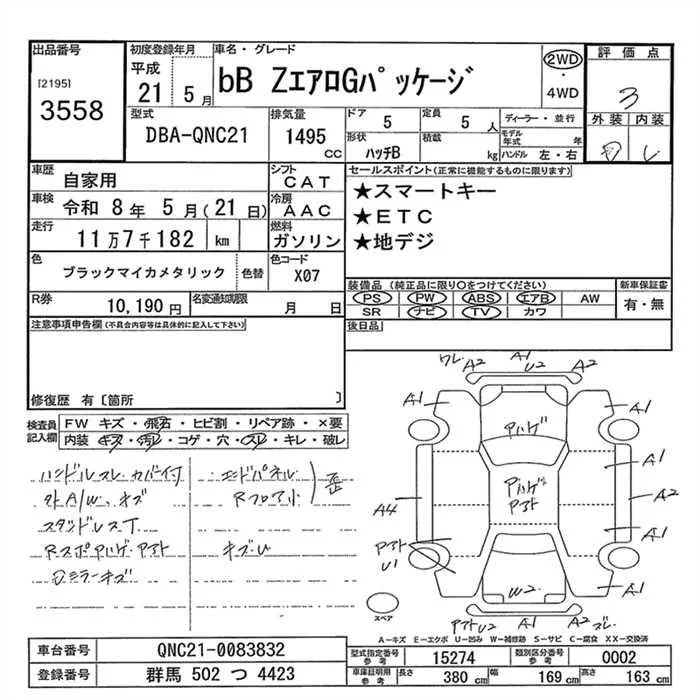 出品番号
[2195]
3558
初度登録年月
平成
21 5月
車名・グレード
bB ZエアロGパッケージ
2WD
・
4WD
評価点
3
外装 内装
型式
DBA-QNC21
排気量
1495
CC
ドア
5
定員
5人
形状
ハッチB
積載
kg
ディーラー・並行
モデル年式 年
ハンドル 左・右
車歴
自家用
シフト
CAT
車検
令和 8年 5月(21日)
冷房
AAC
走行
11万7千182 km
燃料
ガソリン
色
ブラックマイカメタリック
色替
色コード
X07
R券
10,190円
名変通知期限
月 日
セールスポイント(正常に機能するものに限ります)
★スマートキー
★ETC
★地デジ
装備品(純正品に限り○をつけてください)
PS PW ABS エアB AW
SR ナビ TV カワ
新車保証書
有・無
後日品
注意事項申告欄(不具合内容等は具体的に記入して下さい)
修復歴 有〔箇所 〕
検査員
記入欄
FW キズ・飛石・ヒビ割・リペア跡・×要
内装 キズ・汚レ・コゲ・穴・スレ・キレ・破レ
ハンドルスレ カバー付
外A/W、キズ
スタッドレスT
Rスポ Pハゲ・Pアト
ドミラーキズ
エンドパネル
Rフロア小
歪
キズ・U
ワレ A2 A1 U2 A2
A1 A1
Pハゲ
A1
Pハゲ
Pアト
A4 A2
Pアト
U1
A1
W2
A1
スペア
Pアト U2 A2 ズレ
A－キズ E－エクボ U－凹み W－補修跡 S－サビ C－腐食 XX－交換済
車台番号
QNC21-0083832
登録番号
群馬 502 つ 4423
型式指定番号
参考
15274
類別区分番号
参考
0002
車庫証明用
参考
長さ
380 cm
幅
169 cm
高さ
163 cm